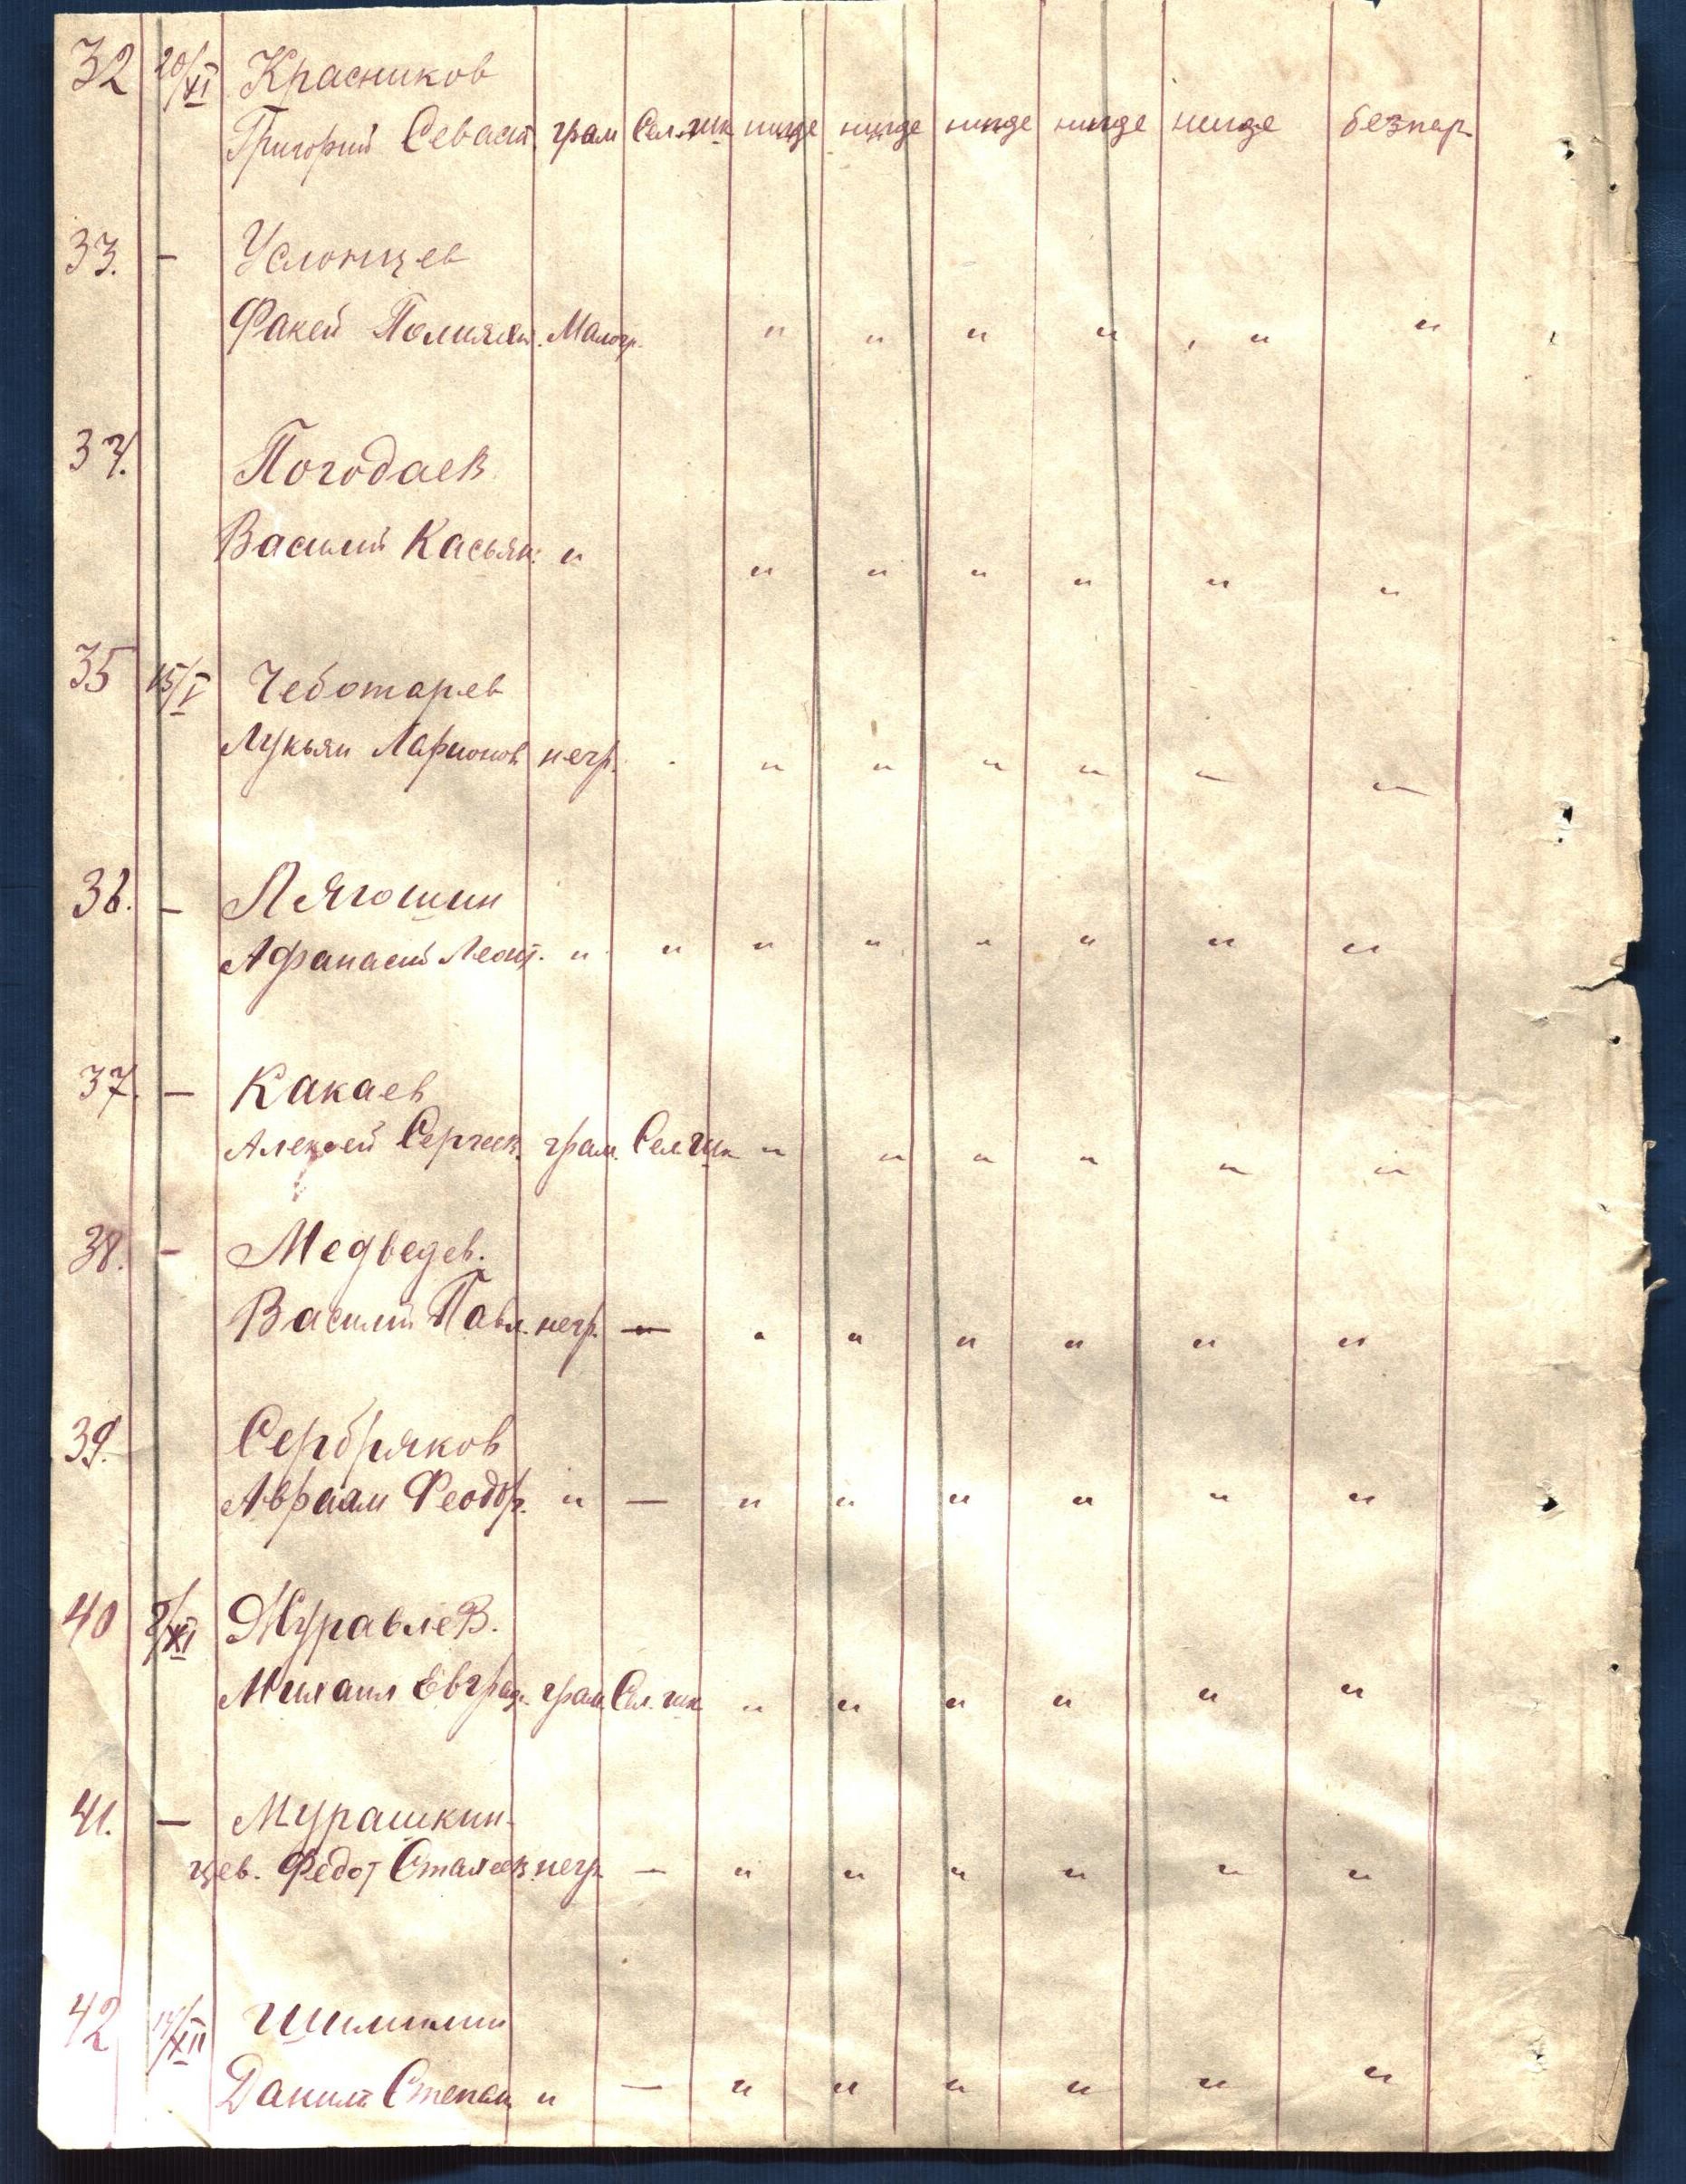 32 20/XI Красников
Григорий Севаст. грам Сел.шк нигде нигде нигде нигде нигде безпар.
33. — Услонцев
Факей Малогр. " " " " " "
34. Погодаев
Василий Касьян. " " " " " " "
35 15/I Чеботарев
Лукьян Ларионов негр. " " " " — —
36. — Лягошин
Афанасий Леонт. " " " " " " " "
37. — Какаев
Алексей Сергеев. грам. Сел.шк " " " " " "
38. — Медведев.
Василий Павл. негр. — " " " " " "
39. Сербряков
Авраам Феодор. " — " " " " " "
40 8/XI Журавлев.
Михаил Евграф. грам. Сел. шк. " " " " " "
41. — Мурашкин-
цев. Федот негр. — " " " " " "
42 /XII Шишмин
Данила Степан " — " " " " " "